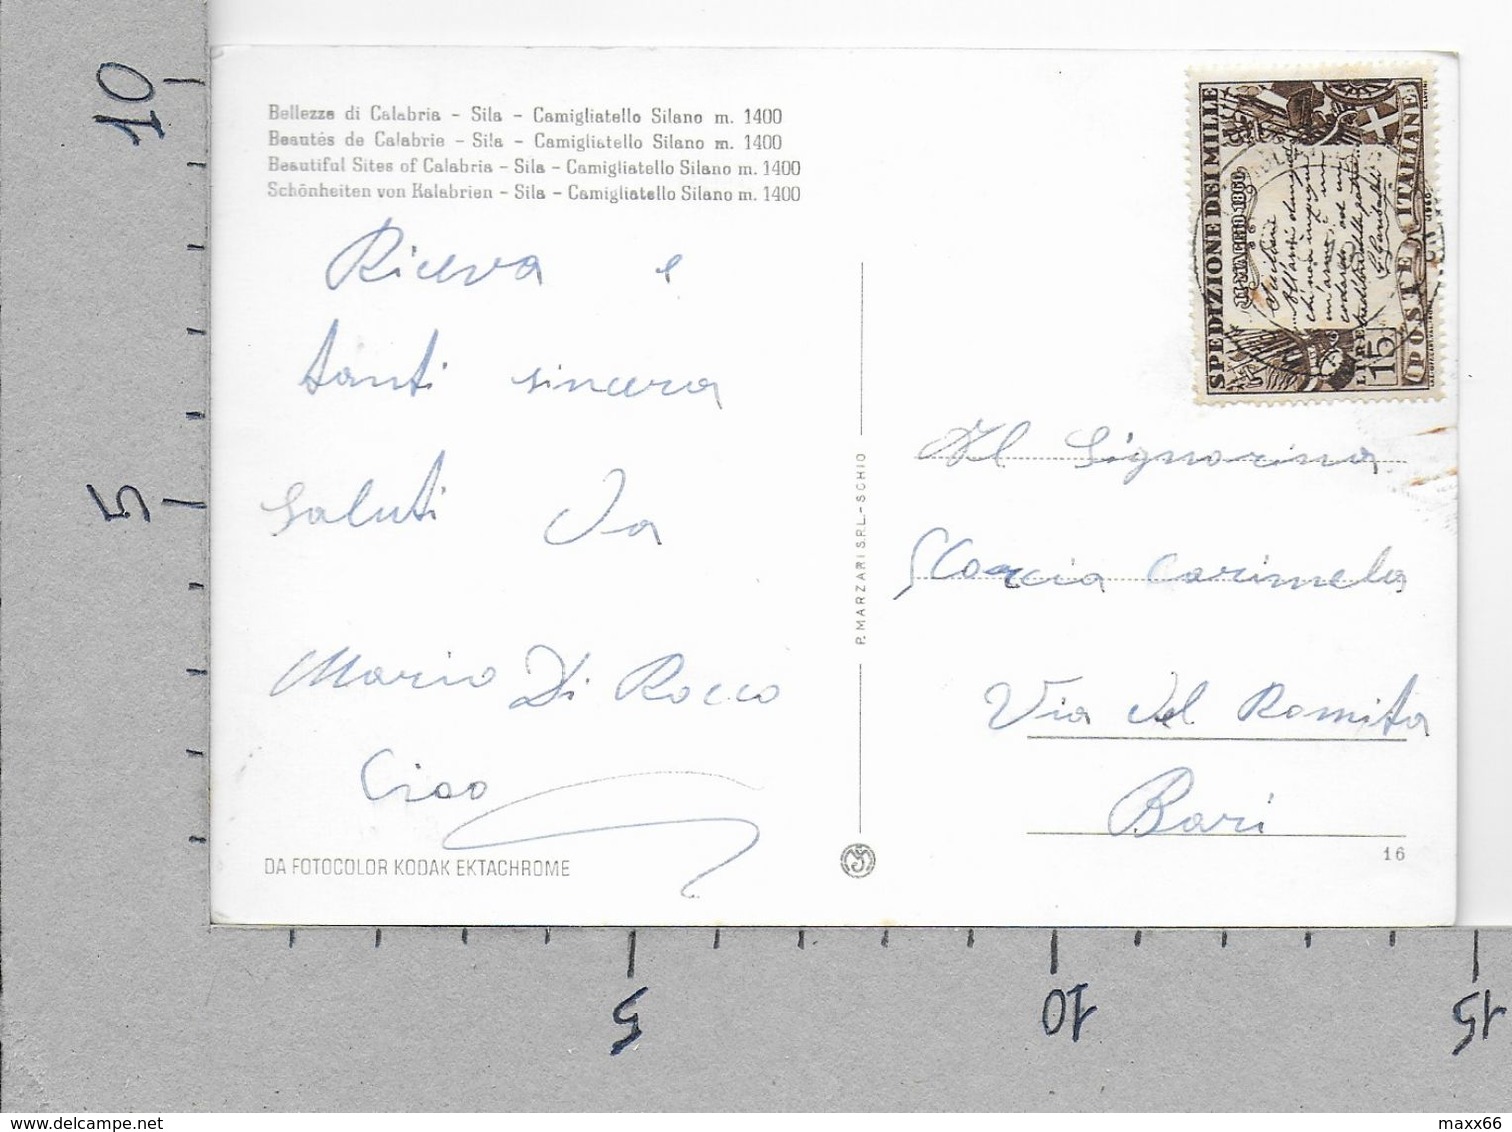 Bellezze di Calabria - Sila - Camigliatello Silano m. 1400
Beautés de Calabrie - Sila - Camigliatello Silano m. 1400
Beautiful Sites of Calabria - Sila - Camigliatello Silano m. 1400
Schönheiten von Kalabrien - Sila - Camigliatello Silano m. 1400
Riceva e
tanti sincera
saluti Da
Mario Di Rocco
Ciao
DA FOTOCOLOR KODAK EKTACHROME
P. MARZARI S.R.L. - SCHIO
SPEDIZIONE DEI MILLE
11 MAGGIO 1860
LIRE 15
POSTE ITALIANE
Al Signorina
Carimela
Via del Romita
Bari
16
10
5
5
10
15
www.delcampe.net
maxx66